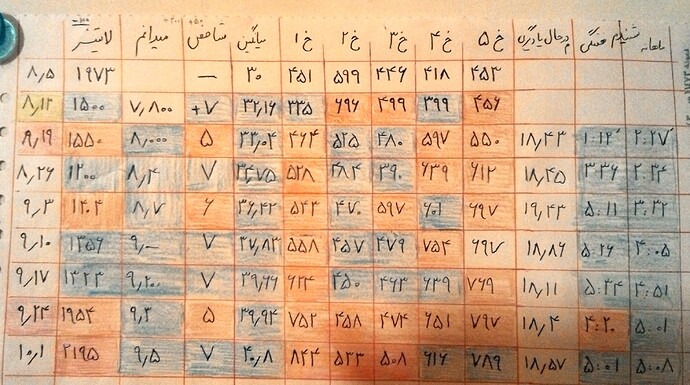 لایتنر میدانم شاخص میانگین خ۱ خ۲ خ۳ خ۴ خ۵ در حال یادگیری شنیدم هفتگی ماهانه
۸٫۵ ۱۹۷۳ — ۳۰ ۴۵۱ ۵۹۹ ۴۴۶ ۴۱۸ ۴۵۳
۸٫۱۲ ۱۵۰۰ ۷٫۸۰۰ +۷ ۳۲٫۱۶ ۳۳۵ ۶۹۶ ۴۹۹ ۳۹۹ ۴۵۶
۸٫۱۹ ۱۵۵۰ ۸٫۰۰۰ ۵ ۳۳٫۰۴ ۴۶۴ ۵۲۵ ۴۸۰ ۵۹۷ ۵۵۰ ۱۸٫۴۳ ۱:۱۲ ۲:۲۷
۸٫۲۶ ۱۲۰۰ ۸٫۴ ۷ ۳۴٫۷۵ ۵۲۸ ۴۸۴ ۳۹۰ ۶۳۹ ۶۱۲ ۱۸٫۴۵ ۳:۳۶ ۲:۳۴
۹٫۳ ۱۲۰۴ ۸٫۷ ۶ ۳۶٫۴۲ ۵۲۳ ۴۷۰ ۵۹۷ ۶۰۱ ۶۹۷ ۱۹٫۴۳ ۵:۱۱ ۳:۳۲
۹٫۱۰ ۱۲۵۶ ۹٫۰۰ ۷ ۳۷٫۸۳ ۵۵۸ ۴۵۷ ۴۷۹ ۷۵۴ ۶۹۷ ۱۸٫۸۶ ۵:۲۶ ۴:۰۵
۹٫۱۷ ۱۳۲۳ ۹٫۲۰۰ ۷ ۳۹٫۶۶ ۶۳۴ ۴۵۰ ۴۶۳ ۶۳۹ ۷۶۹ ۱۸٫۱۱ ۵:۲۴ ۴:۵۱
۹٫۲۴ ۱۹۵۴ ۹٫۳ ۵ ۳۹٫۹۴ ۷۵۲ ۴۵۸ ۴۷۴ ۶۵۱ ۷۹۷ ۱۸٫۴ ۴:۲۰ ۵:۰۱
۱۰٫۱ ۲۱۹۵ ۹٫۵ ۷ ۴۰٫۸ ۸۴۴ ۵۳۳ ۵۰۸ ۶۱۶ ۷۸۹ ۱۸٫۵۷ ۵:۰۱ ۵:۰۸